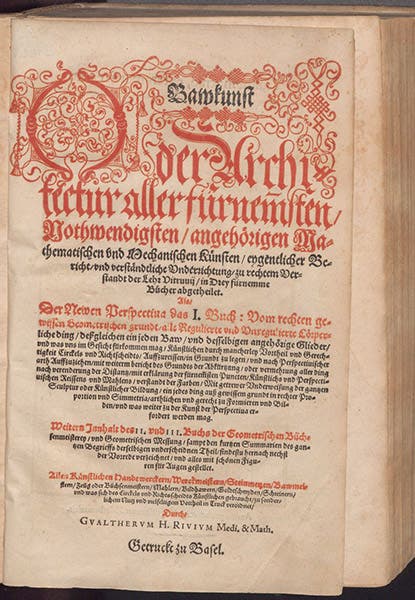 Bawkunst
Oder Archi
tectur aller fürnemsten/
Nothwendigsten/ angehörigen Ma-
thematischen vnd Mechanischen Künsten/ eygentlicher Be-
richt/ vnd verständtliche Vnderrichtung/ zu rechtem Ver-
standt der Lehr Vitruuij/ in Drey fürnemme
Bücher abgetheilet.
Als/
Der Newen Perspectiua das I. Buch: Vom rechten ge-
wissen Geometrischen grundt/ alle Regulierte vnd Vnregulierte Cörper-
liche ding/ deßgleichen ein jeden Baw/ vnd desselbigen angehörige Glieder/
vnd was vns im Gesicht fürkommen mag/ Künstlichen durch mancherley Vortheil vnd Gerech-
tigkeit Circkels vnd Richtscheidts/ Auffzureissen/ in Grundt zu legen/ vnd nach Perspectiuischer
Auffziehen/ mit weiterm bericht des Grundts der Abkürtzung/ oder vermehrung aller ding
nach verenderung der Distantz/ mit erklärung der fürnemsten Puncten/ Künstlichs vnd Perspecti-
uischen Reissens vnd Mahlens/ verstandt der Farben/ Mit getrewer Vnderweisung der gantzen
Sculptur oder Künstlicher Bildung/ ein jedes ding auß gewissem grundt in rechter Pro-
portion vnd Simmetria/ artlichen vnd gerecht zu Formieren vnd Bil-
den/ vnd was weiter zu der Kunst der Perspectiua er-
fordert werden mag.
Weitern Innhalt des II. vnd III. Buchs der Geometrischen Büch-
senmeisterey/ vnd Geometrischen Messung/ sampt den kurtzen Summarien des gan-
tzen Begriffs derselbigen vnderscheidnen Theil/ findestu hernach nechst
der Vorrede verzeichnet/ vnd alles mit schönen Figu-
ren für Augen gestellet.
Allen Künstlichen Handtwerckern/ Werckmeistern/ Steinmetzen/ Bawmei-
stern/ Zeug oder Büchsenmeistern/ Mahlern/ Bildhawern/ Goldtschmiden/ Schreinern/
vnd was sich des Circkels vnd Richtscheidts Künstlichen gebraucht/ zu sonder-
lichem Nutz vnd vielfältigem Vortheil in Truck verordnet/
Durch
GVALTHERVM H. RIVIVM Medi. & Math.
Getruckt zu Basel.